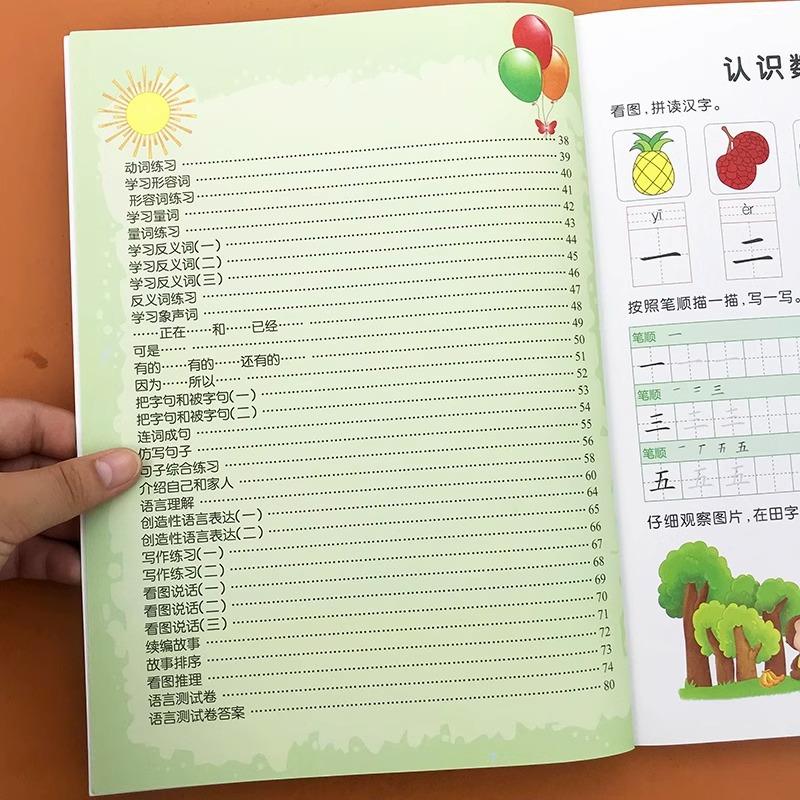 动词练习 …… 38
学习形容词 …… 39
形容词练习 …… 40
学习量词 …… 41
量词练习 …… 42
学习反义词(一) …… 43
学习反义词(二) …… 44
学习反义词(三) …… 45
反义词练习 …… 46
学习象声词 …… 47
……正在……和……已经…… …… 48
可是…… …… 49
有的……有的……还有的…… …… 50
因为……所以…… …… 51
把字句和被字句(一) …… 52
把字句和被字句(二) …… 53
连词成句 …… 54
仿写句子 …… 55
句子综合练习 …… 56
介绍自己和家人 …… 58
语言理解 …… 60
创造性语言表达(一) …… 64
创造性语言表达(二) …… 65
写作练习(一) …… 66
写作练习(二) …… 67
看图说话(一) …… 68
看图说话(二) …… 69
看图说话(三) …… 70
续编故事 …… 71
故事排序 …… 72
看图推理 …… 73
语言测试卷 …… 74
语言测试卷答案 …… 80
认识数
看图，拼读汉字。
yī èr
一 二
按照笔顺描一描，写一写。
笔顺 一
一
笔顺 一 二 三
三
笔顺 一 丅 五 五
五
仔细观察图片，在田字